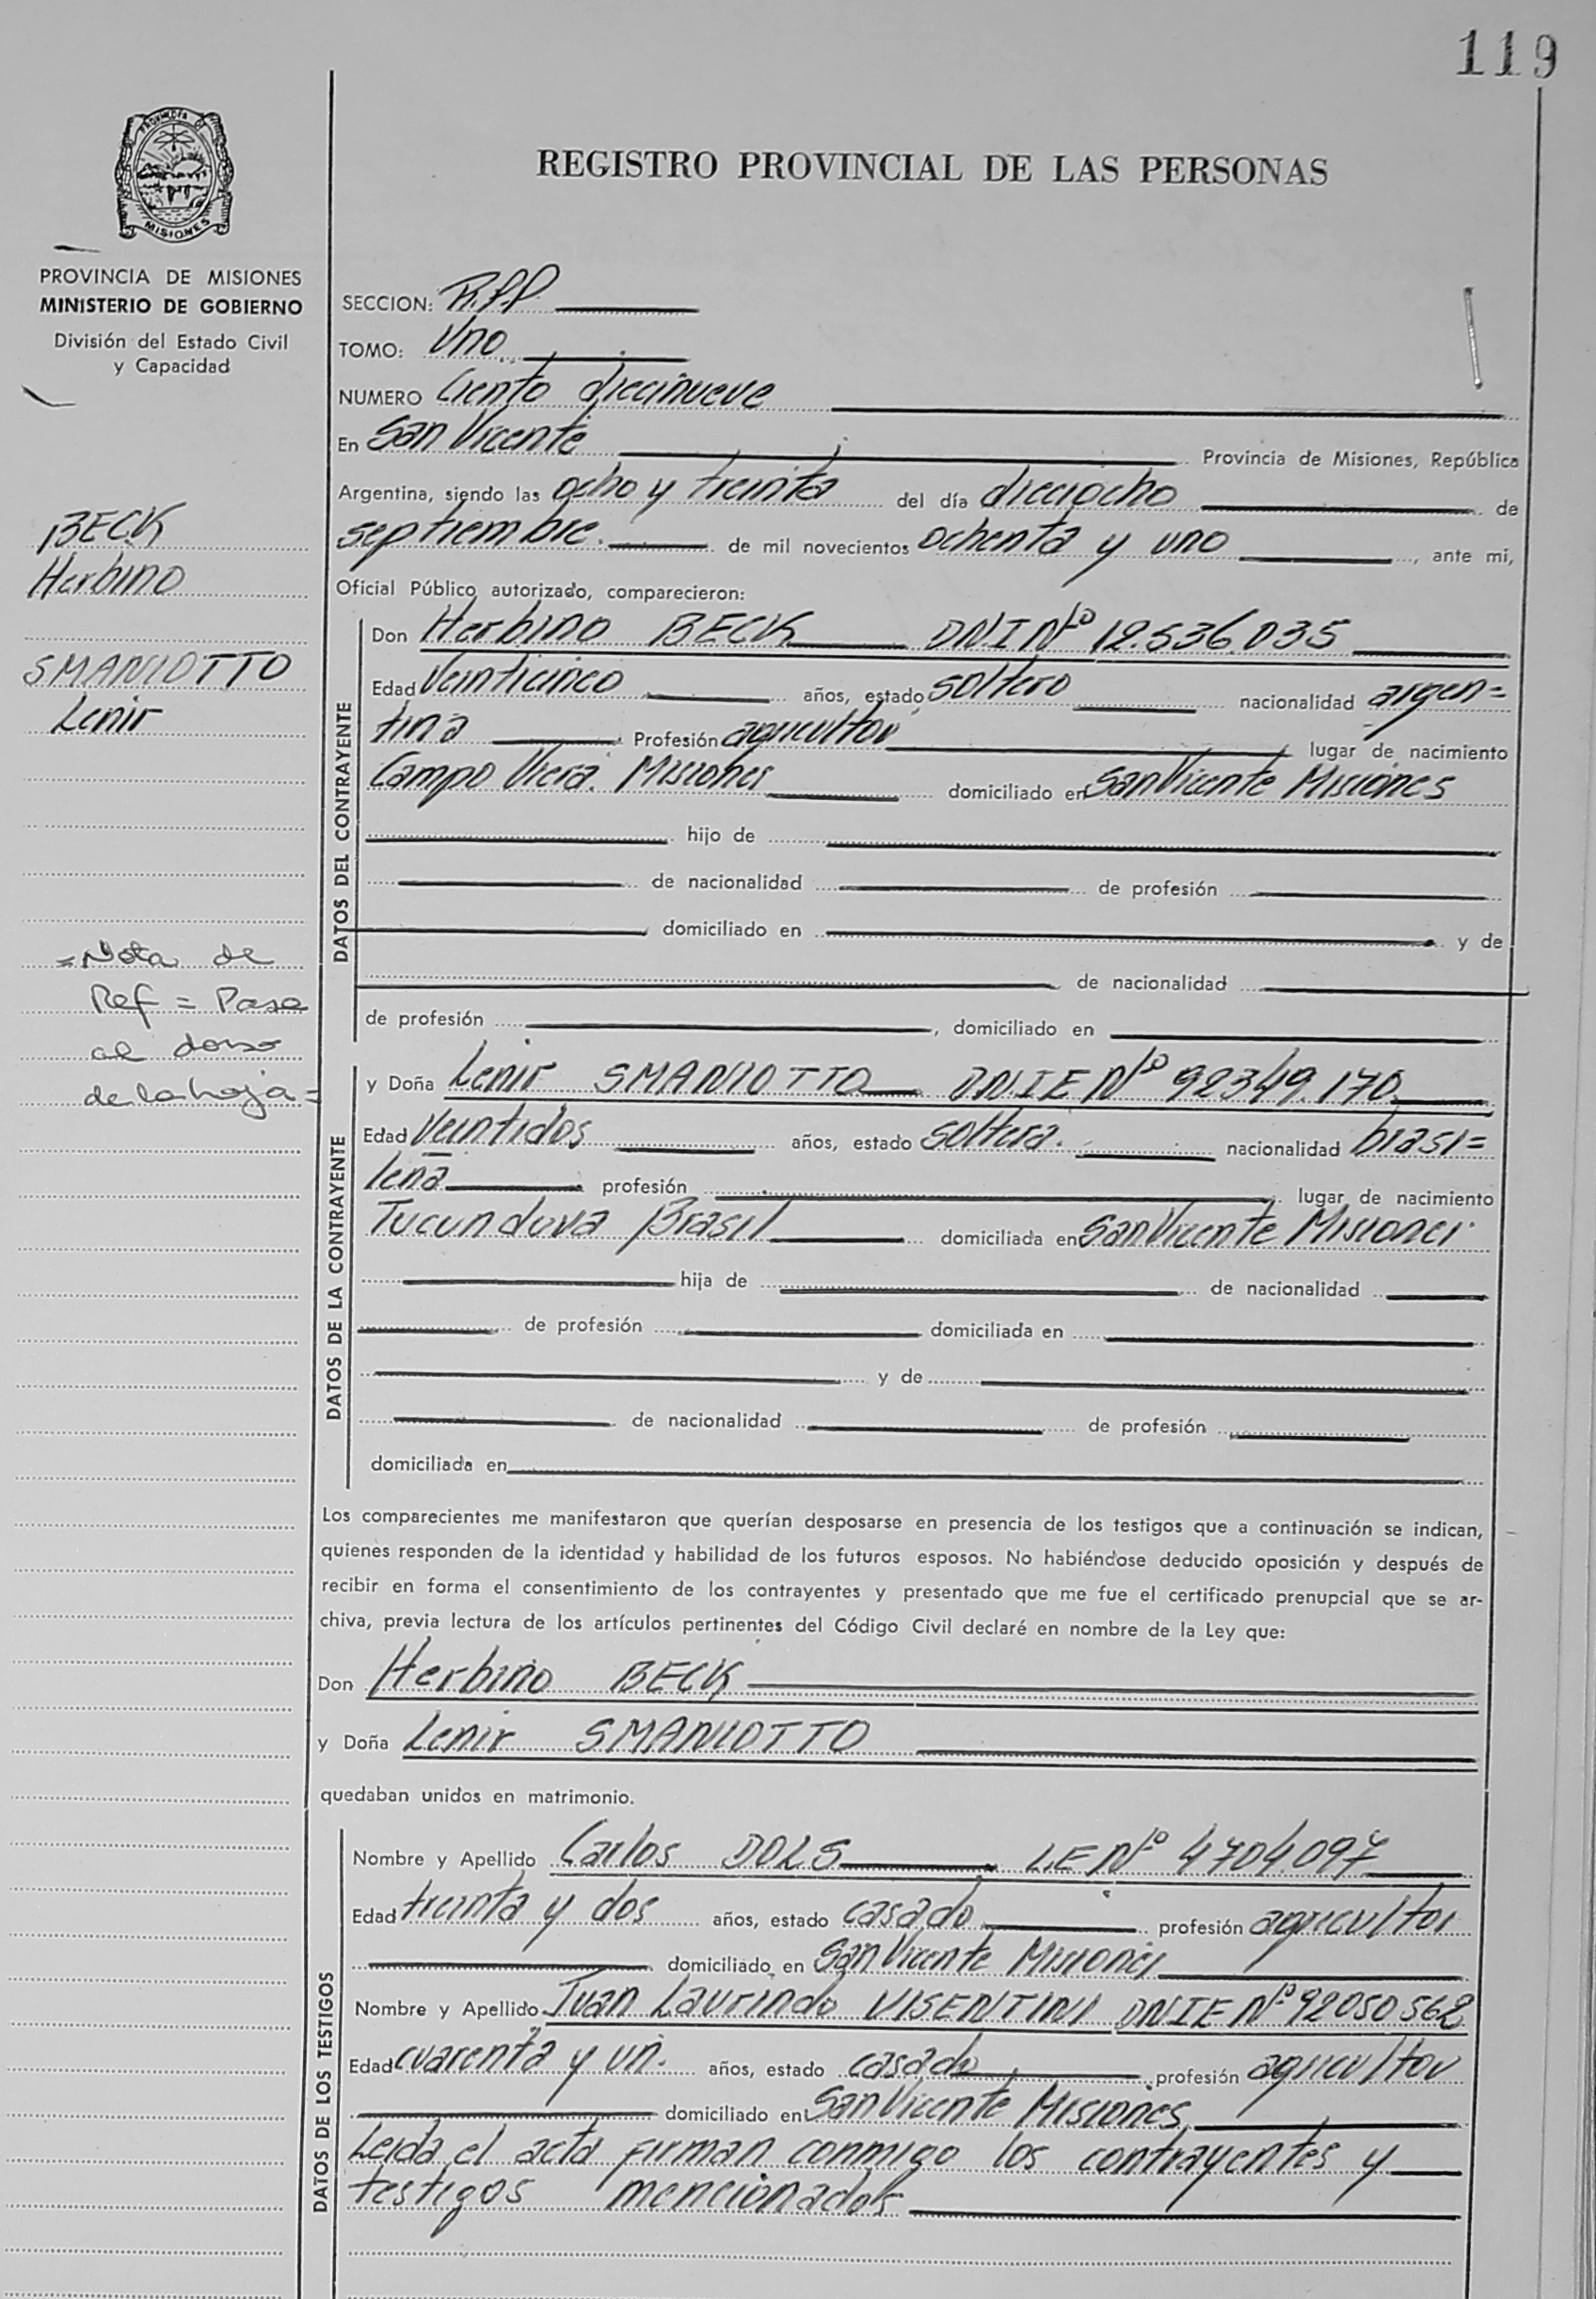 119
PROVINCIA DE
MISIONES
REGISTRO PROVINCIAL DE LAS PERSONAS
PROVINCIA DE MISIONES
MINISTERIO DE GOBIERNO
División del Estado Civil
y Capacidad
SECCION: R.P.P.
TOMO: Uno
NUMERO Ciento diecinueve
En San Vicente Provincia de Misiones, República
Argentina, siendo las ocho y treinta del día dieciocho de
septiembre. de mil novecientos ochenta y uno, ante mi,
Oficial Público autorizado, comparecieron:
BECK
Herbino
SMANIOTTO
Lenir
=Nota de
Ref = Pasa
al dorso
de la hoja=
DATOS DEL CONTRAYENTE
Don Herbino BECK DNI Nº 12.536.035
Edad Veinticinco años, estado soltero nacionalidad argen=
tina Profesión agricultor lugar de nacimiento
Campo Viera. Misiones domiciliado en San Vicente Misiones
hijo de
de nacionalidad de profesión
domiciliado en y de
de nacionalidad
de profesión , domiciliado en
DATOS DE LA CONTRAYENTE
y Doña Lenir SMANIOTTO DN.IE Nº 92349.170
Edad Veintidos años, estado soltera. nacionalidad brasi=
lena profesión lugar de nacimiento
Tucunduva Brasil domiciliada en San Vicente Misiones
hija de de nacionalidad
de profesión domiciliada en
y de
de nacionalidad de profesión
domiciliada en
Los comparecientes me manifestaron que querían desposarse en presencia de los testigos que a continuación se indican,
quienes responden de la identidad y habilidad de los futuros esposos. No habiéndose deducido oposición y después de
recibir en forma el consentimiento de los contrayentes y presentado que me fue el certificado prenupcial que se ar-
chiva, previa lectura de los artículos pertinentes del Código Civil declaré en nombre de la Ley que:
Don Herbino BECK
y Doña Lenir SMANIOTTO
quedaban unidos en matrimonio.
DATOS DE LOS TESTIGOS
Nombre y Apellido Carlos DOLS L.E Nº 4704.097
Edad treinta y dos años, estado casado profesión agricultor
domiciliado en San Vicente Misiones
Nombre y Apellido Juan Laurindo VISENTINI DNIE Nº 92050562
Edad cuarenta y un. años, estado casado profesión agricultor
domiciliado en San Vicente Misiones
Leida el acta firman conmigo los contrayentes y
testigos mencionados